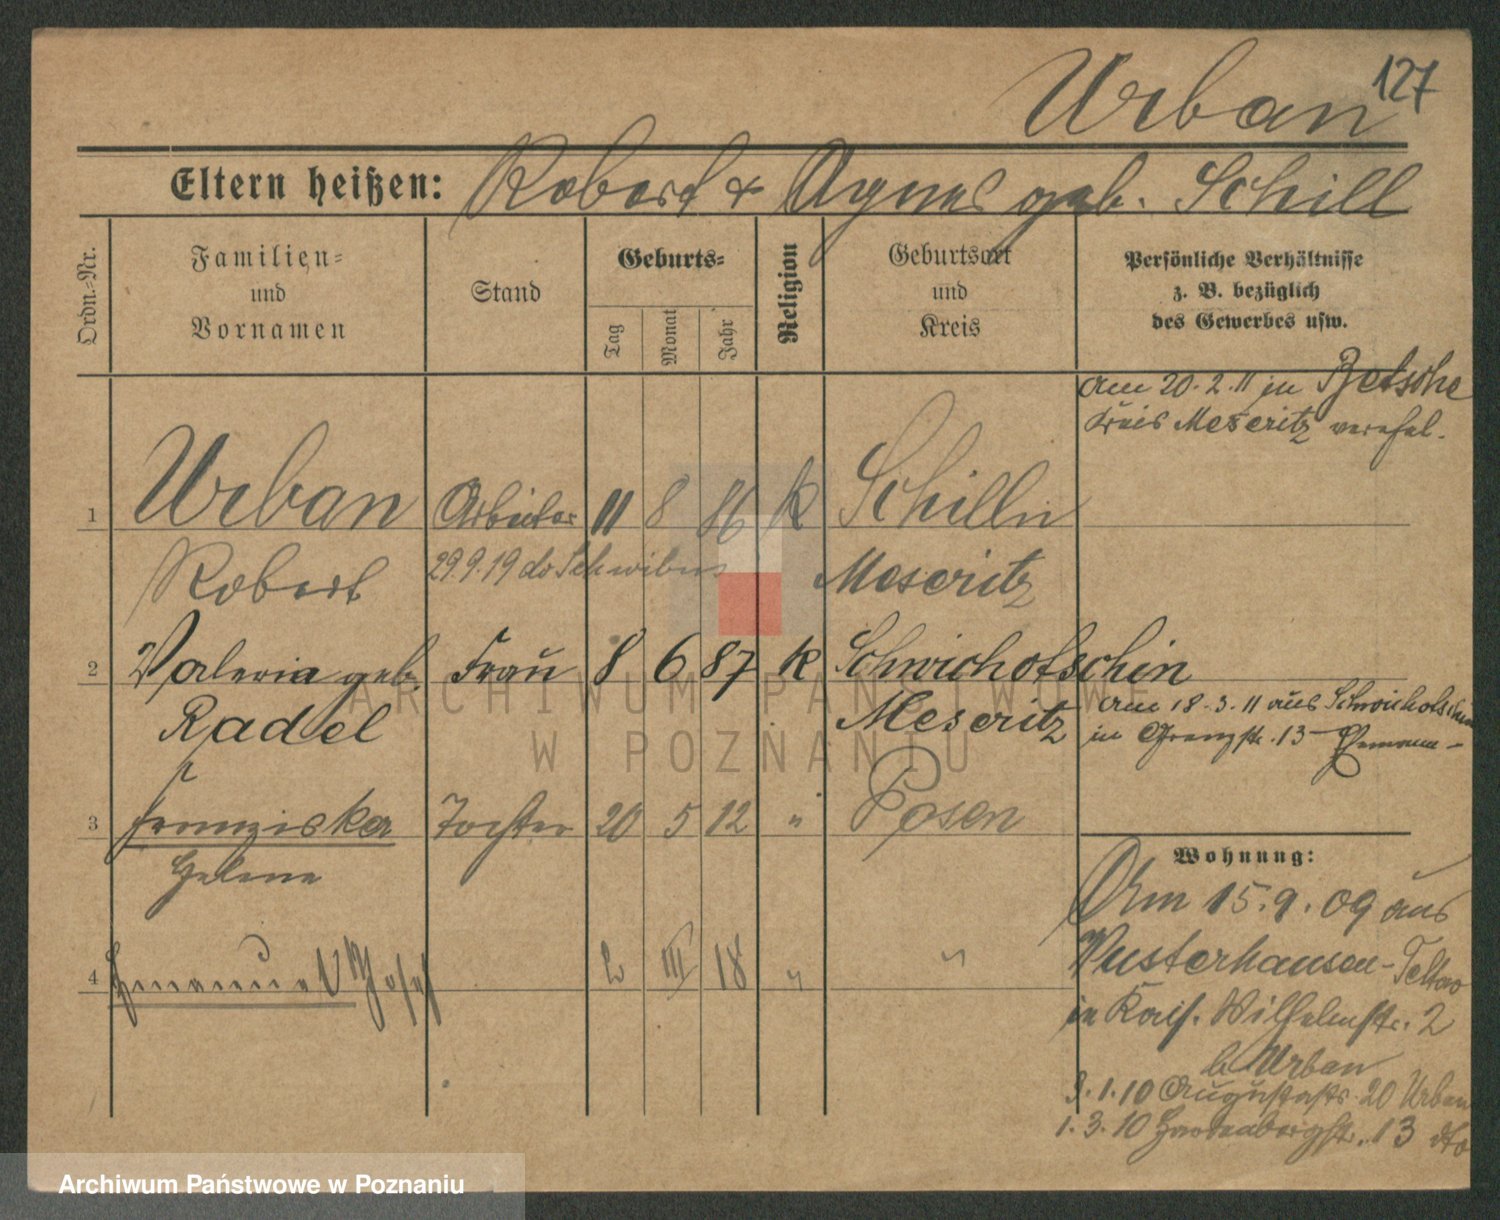 127
Urban
Eltern heißen: Robert & Agnes geb. Schill
Ordn.-Nr.
Familien-
und
Vornamen
Stand
Geburts-
Tag
Monat
Jahr
Religion
Geburtsort
und
Kreis
Persönliche Verhältnisse
z. B. bezüglich
des Gewerbes usw.
am 20.2.11 in Betsche
Kreis Meseritz verehel.
1 Urban Arbeiter 11 8 86 K Schilln
Robert 29.9.19 do Schwibus Meseritz
2 Valeria geb. Frau 8 6 87 K Schwichotschin
Radel Meseritz
am 18.3.11 aus Schwichotschin
in Grenzstr. 13 Ehemann -
3 Franziska Tochter 20 5 12 " Posen
Helene
4 Emanuel Josef 2 III 18 " "
Wohnung:
Am 15.9.09 aus
Wusterhausen-Teltow
in Kais. Wilhelmstr. 2
b. Urban
3.1.10 Augustastr. 20 Urban
1.3.10 Hardenbergstr. 13 dto
ARCHIWUM PAŃSTWOWE
W POZNANIU
Archiwum Państwowe w Poznaniu